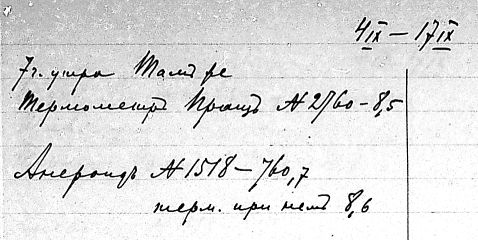 4 IX – 17 IX
7 ч. утра Талъ ре
Термометръ Пращъ № 2760 – 8,5
Анероидъ № 1518 – 760,7
терм. при немъ 8,6